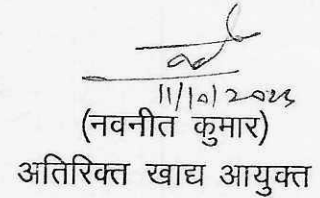 11/10/2023
(नवनीत कुमार)
अतिरिक्त खाद्य आयुक्त